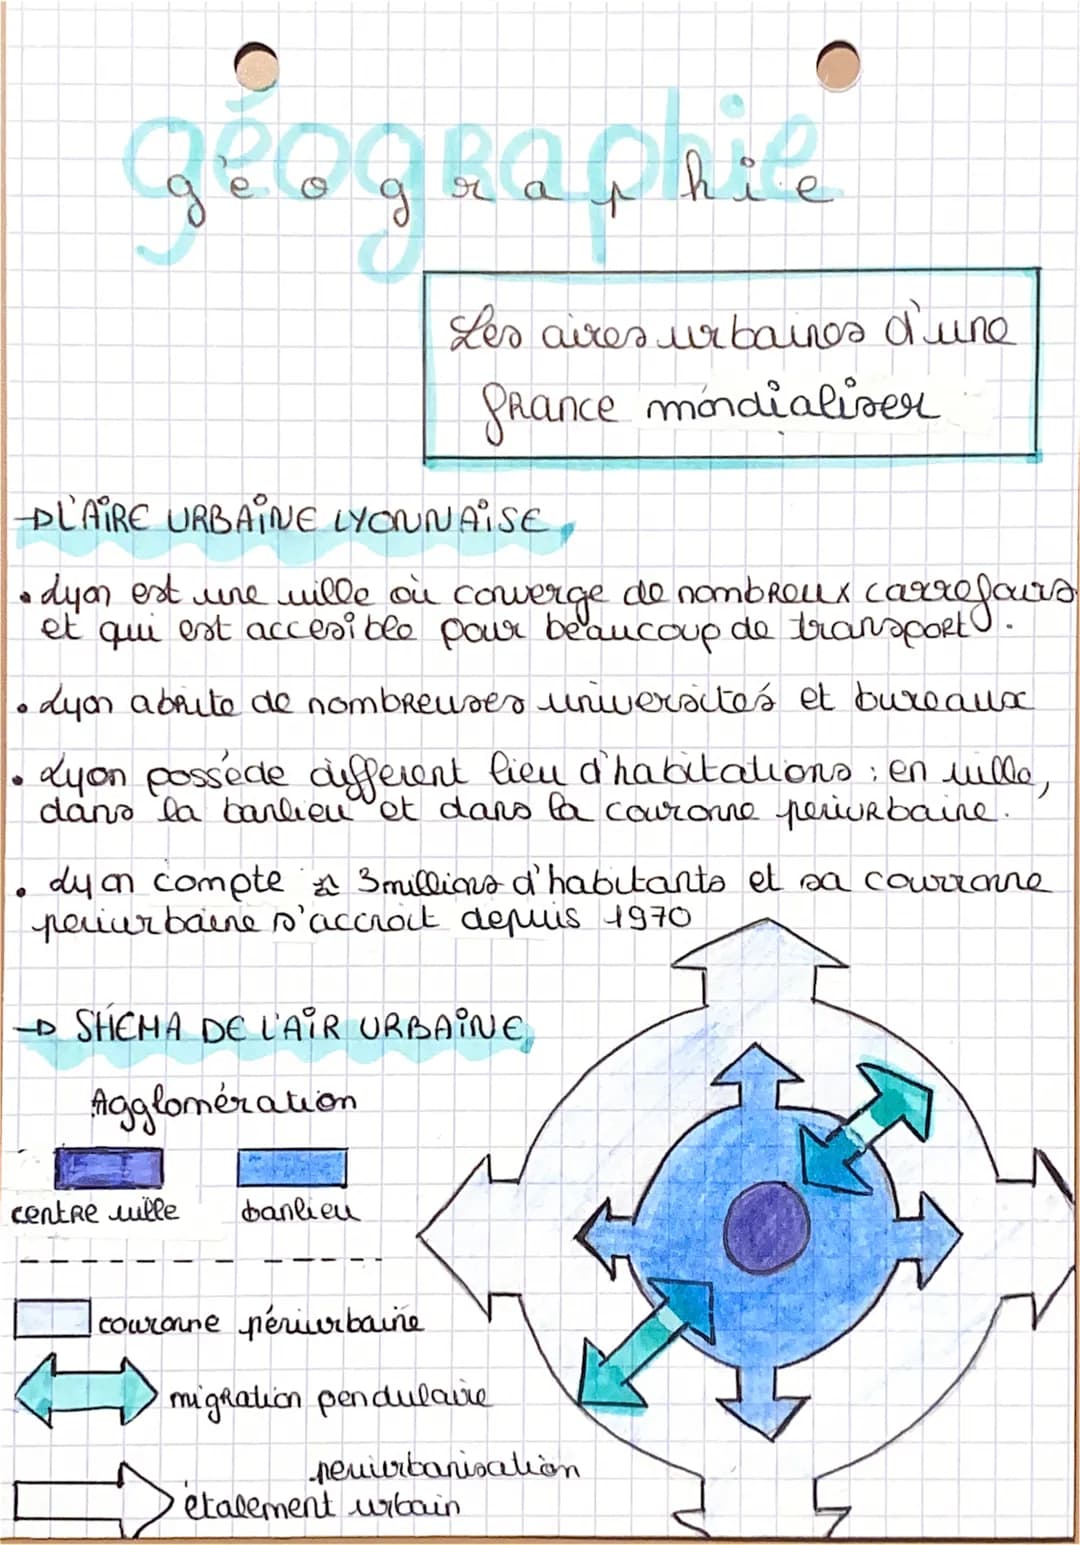 géographie
géographie
Les aires urbaines d'une
france mondialiser
L'AIRE URBAINE LYONNAISE
• Lyon est une ville où converge de nombreux carrefours
et qui est accesible pour beaucoup de transport.
• Lyon abrite de nombreuses universités et bureaux
• Lyon possède different lieu d'habitations : en ville,
dans la banlieu et dans la couronne periurbaine.
• Lyon compte 3 millions d'habitants et sa courronne
periurbaine s'accroit depuis 1970
SHEMA DE L'AIR URBAINE
Agglomération
centre ville banlieu
couronne périurbaine
migration pendulaire
periurbanisation
étalement urbain